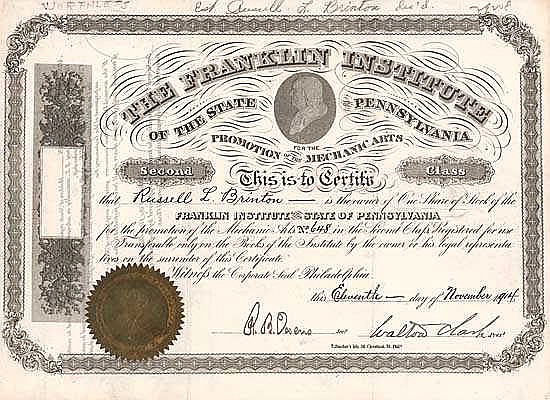 WORTHLESS Est Russell L. Brinton Dec'd.
THE FRANKLIN INSTITUTE
OF THE STATE OF PENNSYLVANIA
FOR THE
PROMOTION OF THE MECHANIC ARTS
Second Class
This is to Certify
that Russell L Brinton is the owner of One Share of Stock of the
FRANKLIN INSTITUTE OF THE STATE OF PENNSYLVANIA
for the promotion of the Mechanic Arts No 648 in the Second Class Registered for use
Transferable only on the Books of the Institute by the owner or his legal representa
tives on the surrender of this Certificate.
Witness the Corporate Seal Philadelphia.
this Eleventh day of November 1914.
R. B. Owens Walton Clark